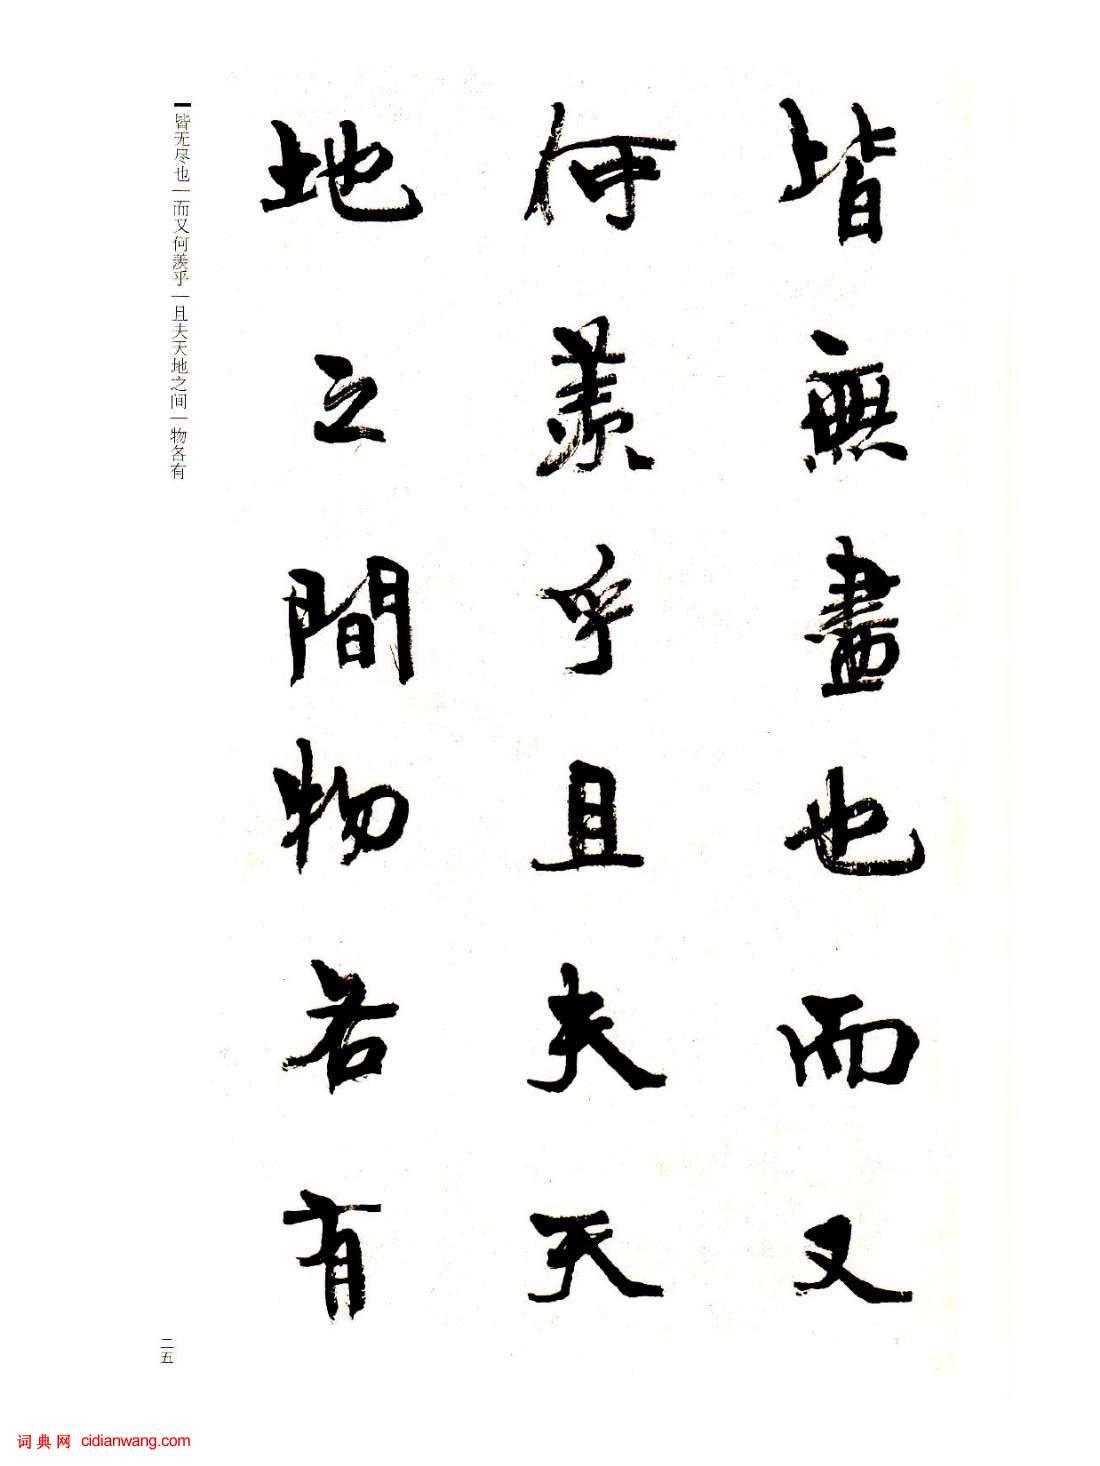 皆無盡也而又
何羨乎且夫天
地之間物各有
皆无尽也|而又何羡乎|且夫天地之间|物各有
二五
词典网 cidianwang.com